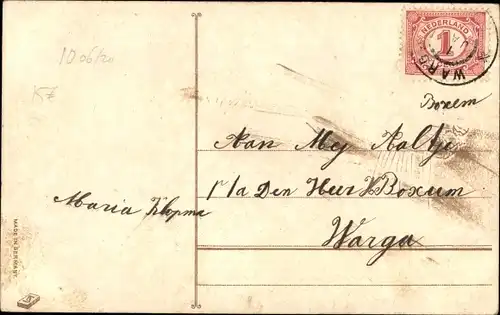 NEDERLAND
1
WARG
Boxem
Aan Mej Aaltje
p/a Den Heer V Boxum
Warga
Maria Klopma
MADE IN GERMANY.